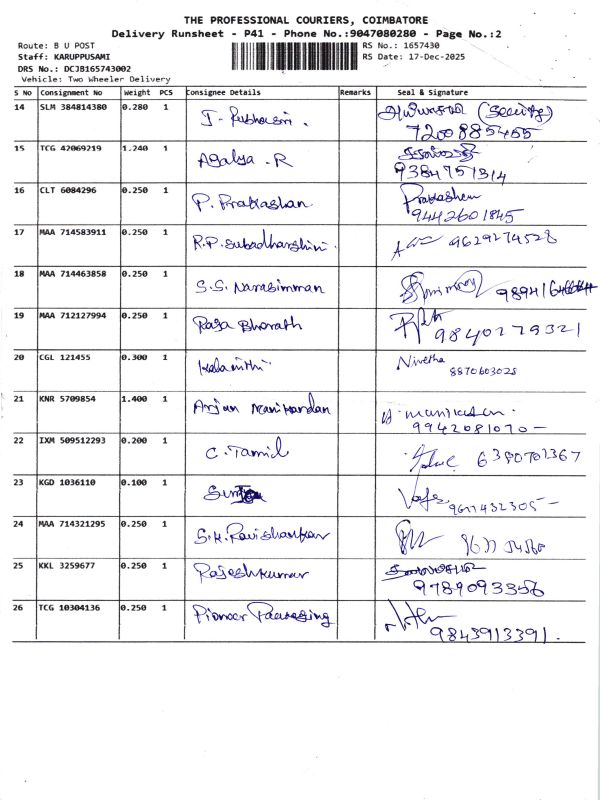 THE PROFESSIONAL COURIERS, COIMBATORE
Delivery Runsheet - P41 - Phone No.:9047080280 - Page No.:2
Route: B U POST RS No.: 1657430
Staff: KARUPPUSAMI RS Date: 17-Dec-2025
DRS No.: DCJB165743002
Vehicle: Two Wheeler Delivery
S No Consignment No Weight PCS Consignee Details Remarks Seal & Signature
14 SLM 384814380 0.280 1 (Security)
7200885465
15 TCG 42069219 1.240 1 Agalya . R
9384751314
16 CLT 6084296 0.250 1 P. Prakashan Prakashan
9442601845
17 MAA 714583911 0.250 1 R.P. Subadharshini. 9629274528
18 MAA 714463858 0.250 1 S.S. Narasimman
19 MAA 712127994 0.250 1 Raja Bharath 9840279321
20 CGL 121455 0.300 1 Kalanithi Nivetha
8870603028
21 KNR 5709854 1.400 1 Arjun Manikandan
9942081070
22 IXM 509512293 0.200 1 C. Tamil 6380702367
23 KGD 1036110 0.100 1
9677432305
24 MAA 714321295 0.250 1 S.K. Ravishankar
25 KKL 3259677 0.250 1 Rajeshkumar
9789093356
26 TCG 10304136 0.250 1 Pioneer
9843913391.